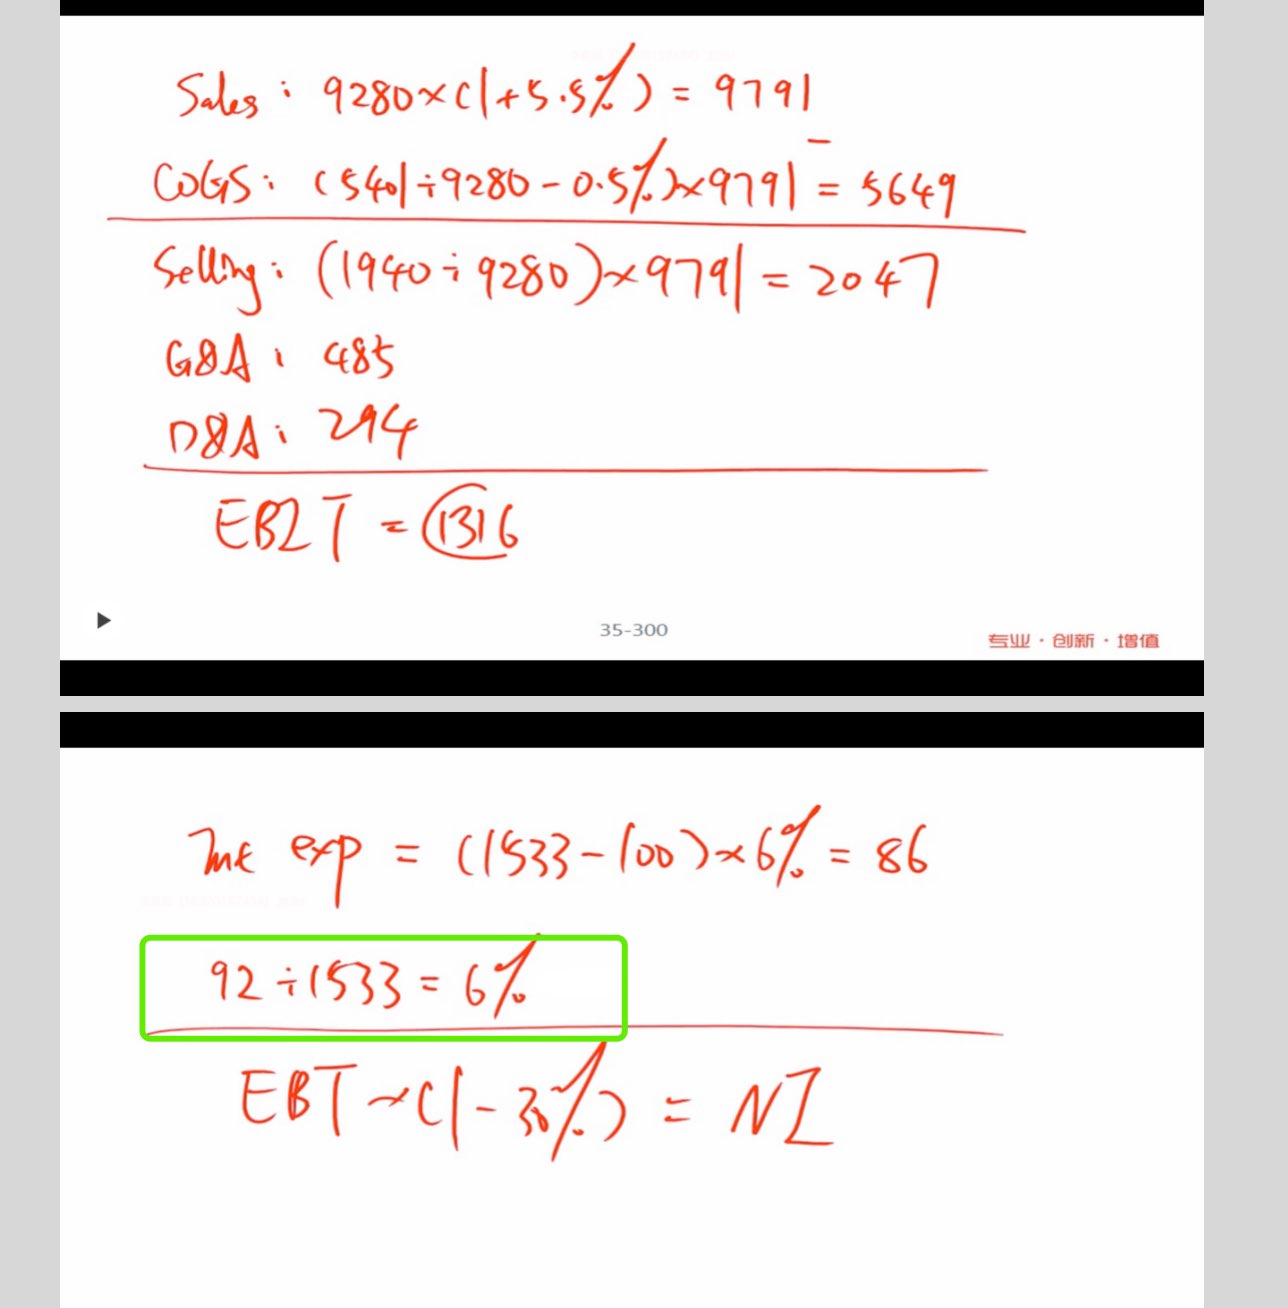 Sales: 9280×(1+5.5%) = 9791
COGS: (5401÷9280-0.5%)×9791 = 5649
Selling: (1940÷9280)×9791 = 2047
G&A: 485
D&A: 294
EBIT = 1316
35-300
专业·创新·增值
Int exp = (1533-100)×6% = 86
92÷1533 = 6%
EBT×(1-30%) = NI